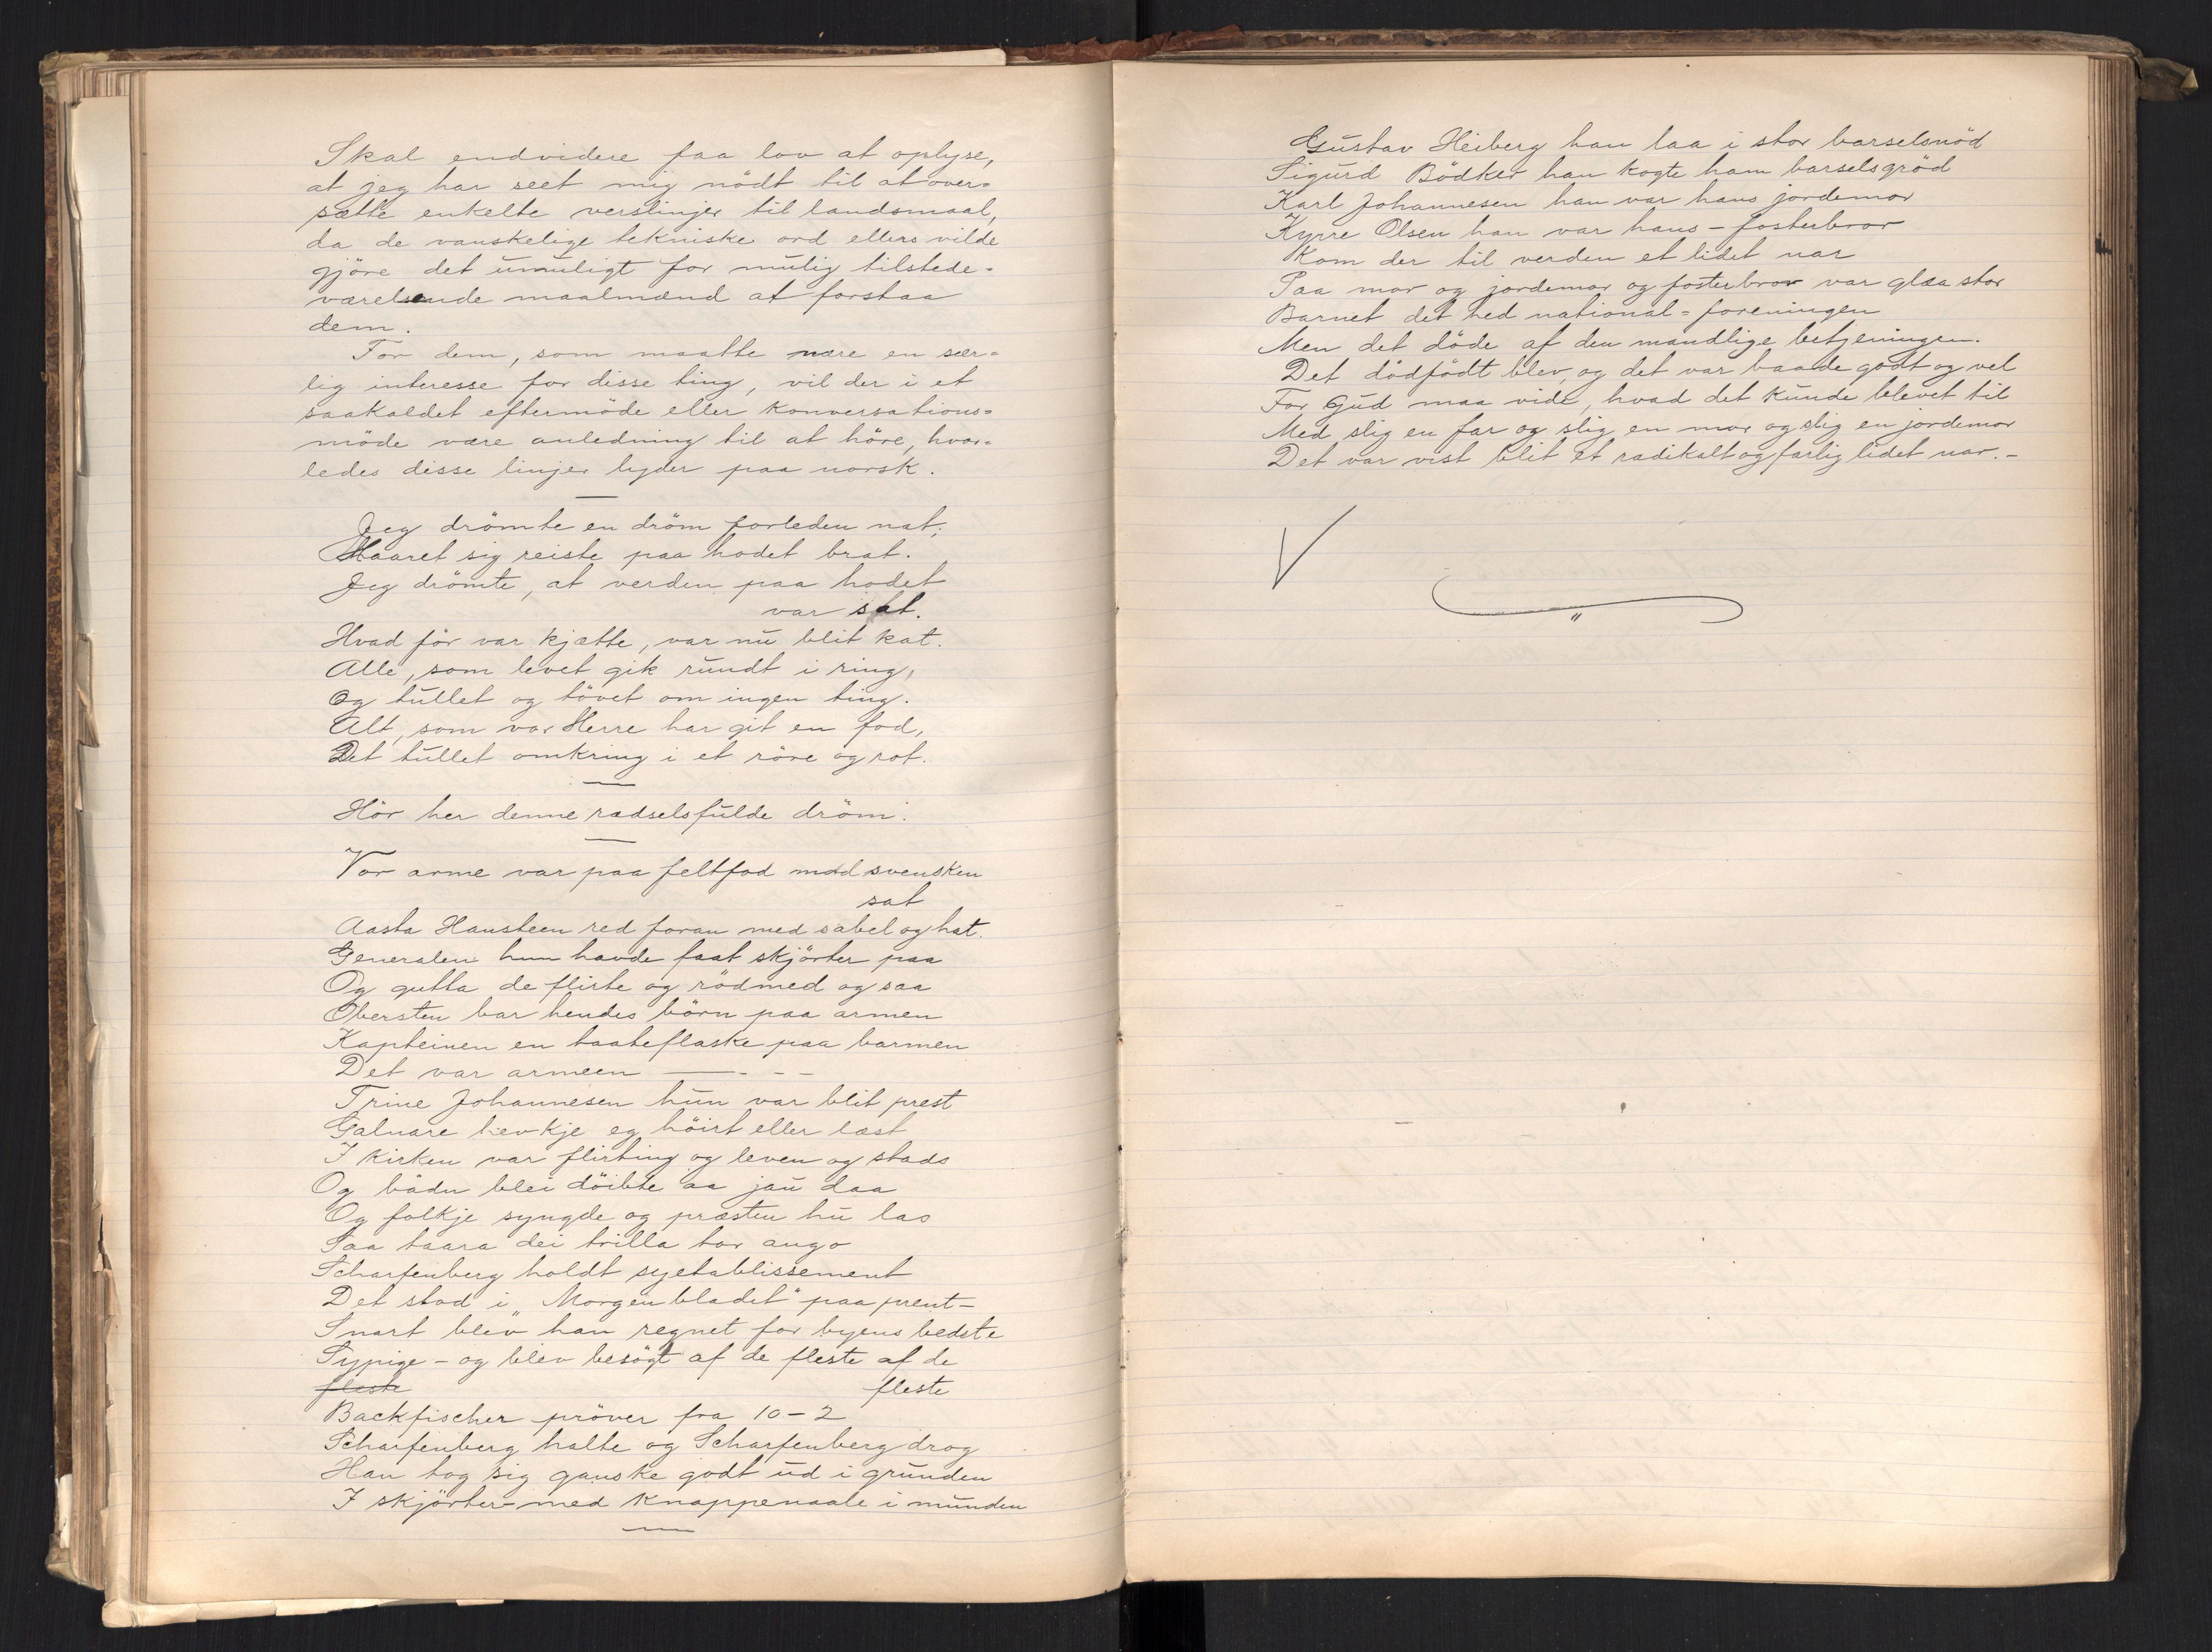 Skal endvidere faa lov at oplyse,
at jeg har seet mig nödt til at over=
sætte enkelte verslinjer til landsmaal,
da de vanskelige tekniske ord ellers vilde
gjöre det umuligt for mulig tilstede-
værelsende maalmænd at forstaa
dem.
For dem, som maatte nære en sær=
lig interesse for disse ting, vil der i et
saakaldet eftermöde eller konversations=
möde være anledning til at höre, hvor=
ledes disse linjer lyder paa norsk.
Jeg drömte en dröm forleden nat;
Haaret sig reiste paa hodet brat.
Jeg drömte, at verden paa hodet
var sat.
Hvad för var kjætte, var nu blit kat.
Alle, som levet gik rundt i ring,
Og tullet og tövet om ingen ting.
Alt, som vor Herre har git en fod,
Det tullet omkring i et röre og rot.
Hör her denne rædselsfulde dröm:
Vor arme var paa feltfod mod svensken
sat
Aasta Hansteen red foran med sabel og hat.
Generalen hun havde faat skjörter paa
Og gutta de flirte og rödmed og saa
Obersten bar hendes börn paa armen
Kapteinen en taateflaske paa barmen
Det var armeen — - - -
Trine Johannesen hun var blit prest
Galnare hevkje eg höirt eller læst
I kirken var flirting og leven og stads
Og bådn blei döibte aa jau daa
Og folkje syngde og præsten hu las
Saa taara dei trilla tor augo
Scharfenberg holdt syetablissement
Det stod i "Morgenbladet" paa prent-
Snart blev han regnet for byens bedste
Sypige - og blev besögt af de fleste af de
fleste fleste
Backfischer pröver fra 10-2
Scharfenberg halte og Scharfenberg drog
Han tog sig ganske godt ud i grunden
I skjörter-med knappenaale i munden
Gustav Heiberg han laa i stor barselsnöd
Sigurd Bödker han kogte ham barselsgröd
Karl Johannesen han var hans jordemor
Kyrre Olsen han var hans - fosterbror
Kom der til verden et lidet nar
Paa mor og jordemor og fosterbror var glæa stor
Barnet det hed national=foreningen
Men det döde af den mandlige betjeningen.
Det dödfödt blev, og det var baade godt og vel
For Gud maa vide, hvad det kunde blevet til
Med slig en far og slig en mor og slig en jordemor
Det var vist blit et radikalt og farlig lidet nar.-
V